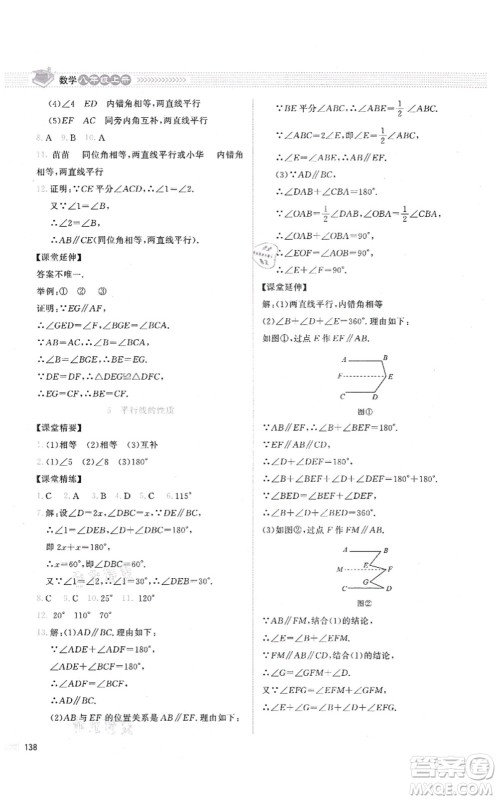 数学八年级上册
(4)∠4 ED 内错角相等,两直线平行
(5)EF AC 同旁内角互补,两直线平行
8. A 9. B 10. A
11. 苗苗 同位角相等,两直线平行或小华 内错角
相等,两直线平行.
12. 证明:∵CE平分∠ACD,
∴∠1=∠2,
∵∠1=∠B,
∴∠2=∠B,
∴AB∥CE(同位角相等,两直线平行).
【课堂延伸】
答案不唯一.
举例:① ② ③
证明:∵EG∥AF,
∴∠GED=∠F,∠BGE=∠BAC.
∵AB=AC,
∴∠B=∠BCA.
∴∠B=∠BGE,
∴BE=EG.
∵DE=DF,∴△DEG≌△DFC,
∴EG=CF.∴BE=CF.
5 平行线的性质
【课堂精要】
1. (1)相等 (2)相等 (3)互补
2. (1)∠5 (2)∠8 (3)180°
【课堂精练】
1. C 2. A 3. B 4. C 5. C 6. 115°
7. 解:设∠D=2x,∠DBC=x,
∵∠D+∠DBC=180°,
即2x+x=180°,
∴x=60°.
∵∠1=∠2,
∴∠DEB=∠1=∠2,
∵∠DEB+∠1+∠2=180°,
∴∠1=∠2=∠DEB=60°.
8. C 9. C 10. A 11. C
12. 20° 110° 70°
13. 解:(1)AD∥BC.理由如下:
∵∠ADE+∠ADF=180°,
∠ADE+∠BCF=180°,
∴∠ADF=∠BCF.
∴AD∥BC.
(2)AB与EF的位置关系是AB∥EF.理由如下:
∵BE平分∠ABC,∴∠ABE=1/2∠ABC.
又∵∠ABC=2∠E,即∠E=1/2∠ABC,
∴∠E=∠ABE.∴AB∥EF.
(3)∵AD∥BC,
∴∠DAB+∠CBA=180°.
∵∠OAB=1/2∠DAB,∠OBA=1/2∠CBA,
∴∠OAB+∠OBA=90°,
∴∠EOF=∠AOB=90°,
∴∠E+∠F=90°.
【课堂延伸】
解:(1)两直线平行,内错角相等
(2)∠B+∠D+∠E=360°.理由如下:
如图①,过点E作EF∥AB,
A B F E C D
图①
∵AB∥EF,∴∠B+∠BEF=180°,
∵AB∥CD,∴EF∥CD,
∴∠D+∠DEF=180°,
∴∠B+∠D+∠BEF+∠DEF=180°+180°,
即∠B+∠D+∠E=360°.
(3)如图②,过点F作FM∥AB,
A B E M F G C D
图②
∵AB∥CD,∴CD∥FM,
结合(1)的结论,
∵AB∥FM,∴∠B+∠EFM=∠E,
结合(1)的结论,
∵CD∥FM,∴∠D+∠GFM=∠G,
∴∠B+∠EFM+∠D+∠GFM=∠E+∠G,
∴∠B+∠F+∠D=∠E+∠G.
138